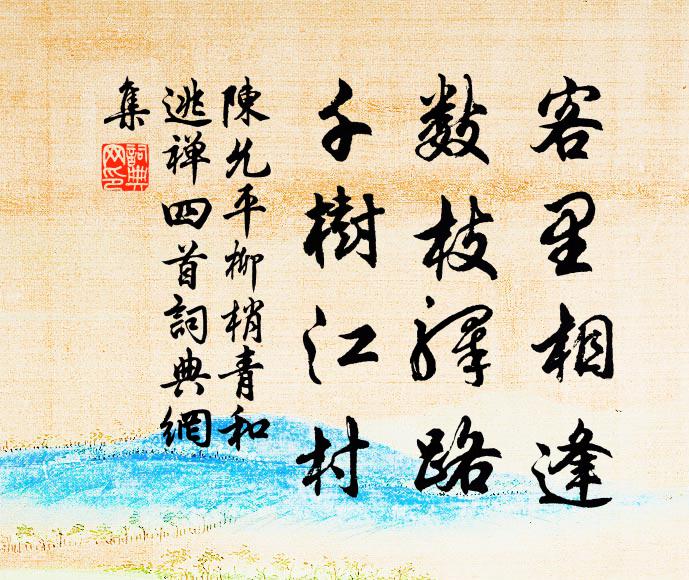 客里相逢
数枝驛路
千樹江村
陳允平柳梢青和
逃禅四首詞典網
集
詞典網印